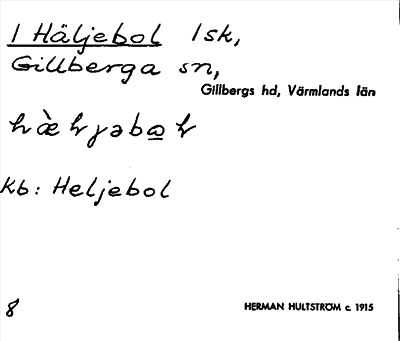 1 Häljebol 1sk,
Gillberga sn,
Gillbergs hd, Värmlands län
Kb: Heljebol
8
HERMAN HULTSTRÖM c. 1915